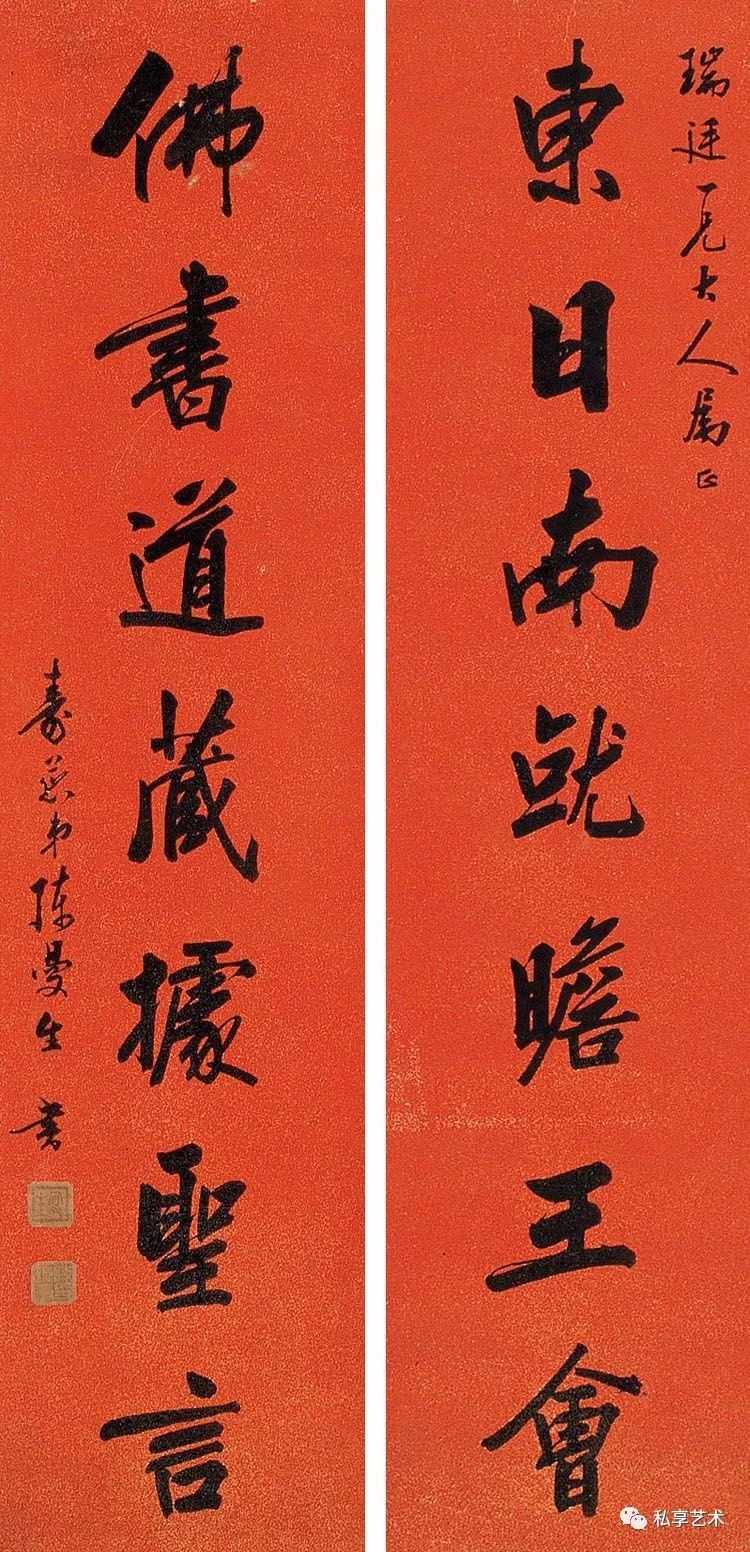 瑞廷一兄大人属正
東日南就瞻王會
佛書道藏據聖言
弟陳曼生書
私享艺术